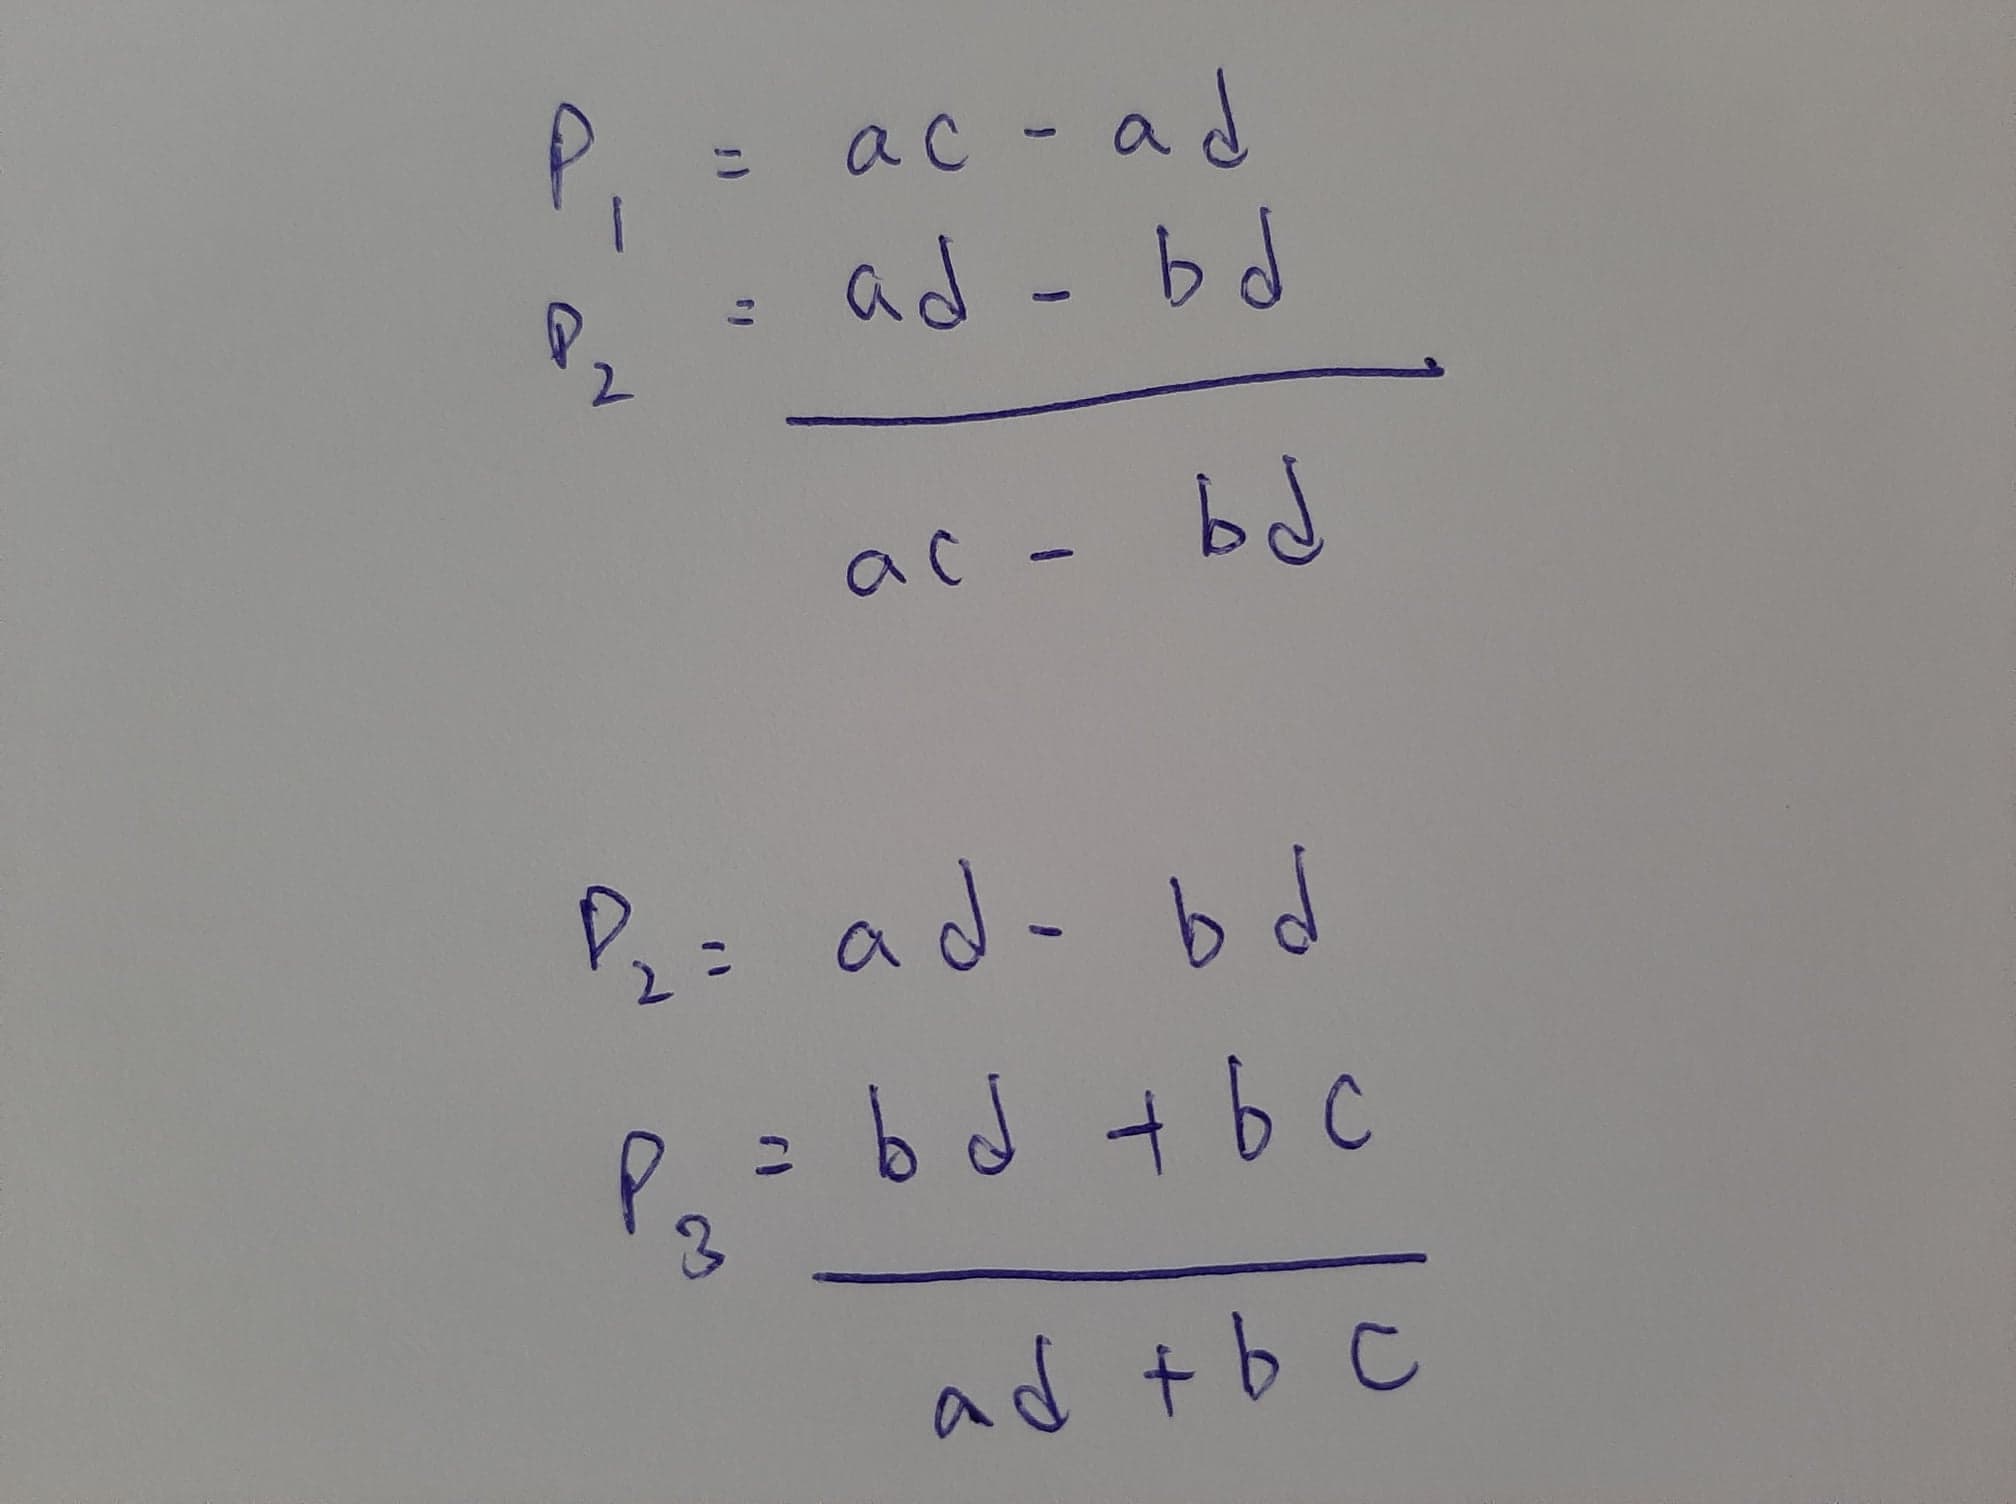 P₁ = ac - ad
P₂ = ad - bd
ac - bd
P₂ = ad - bd
P₃ = bd + bc
ad + bc